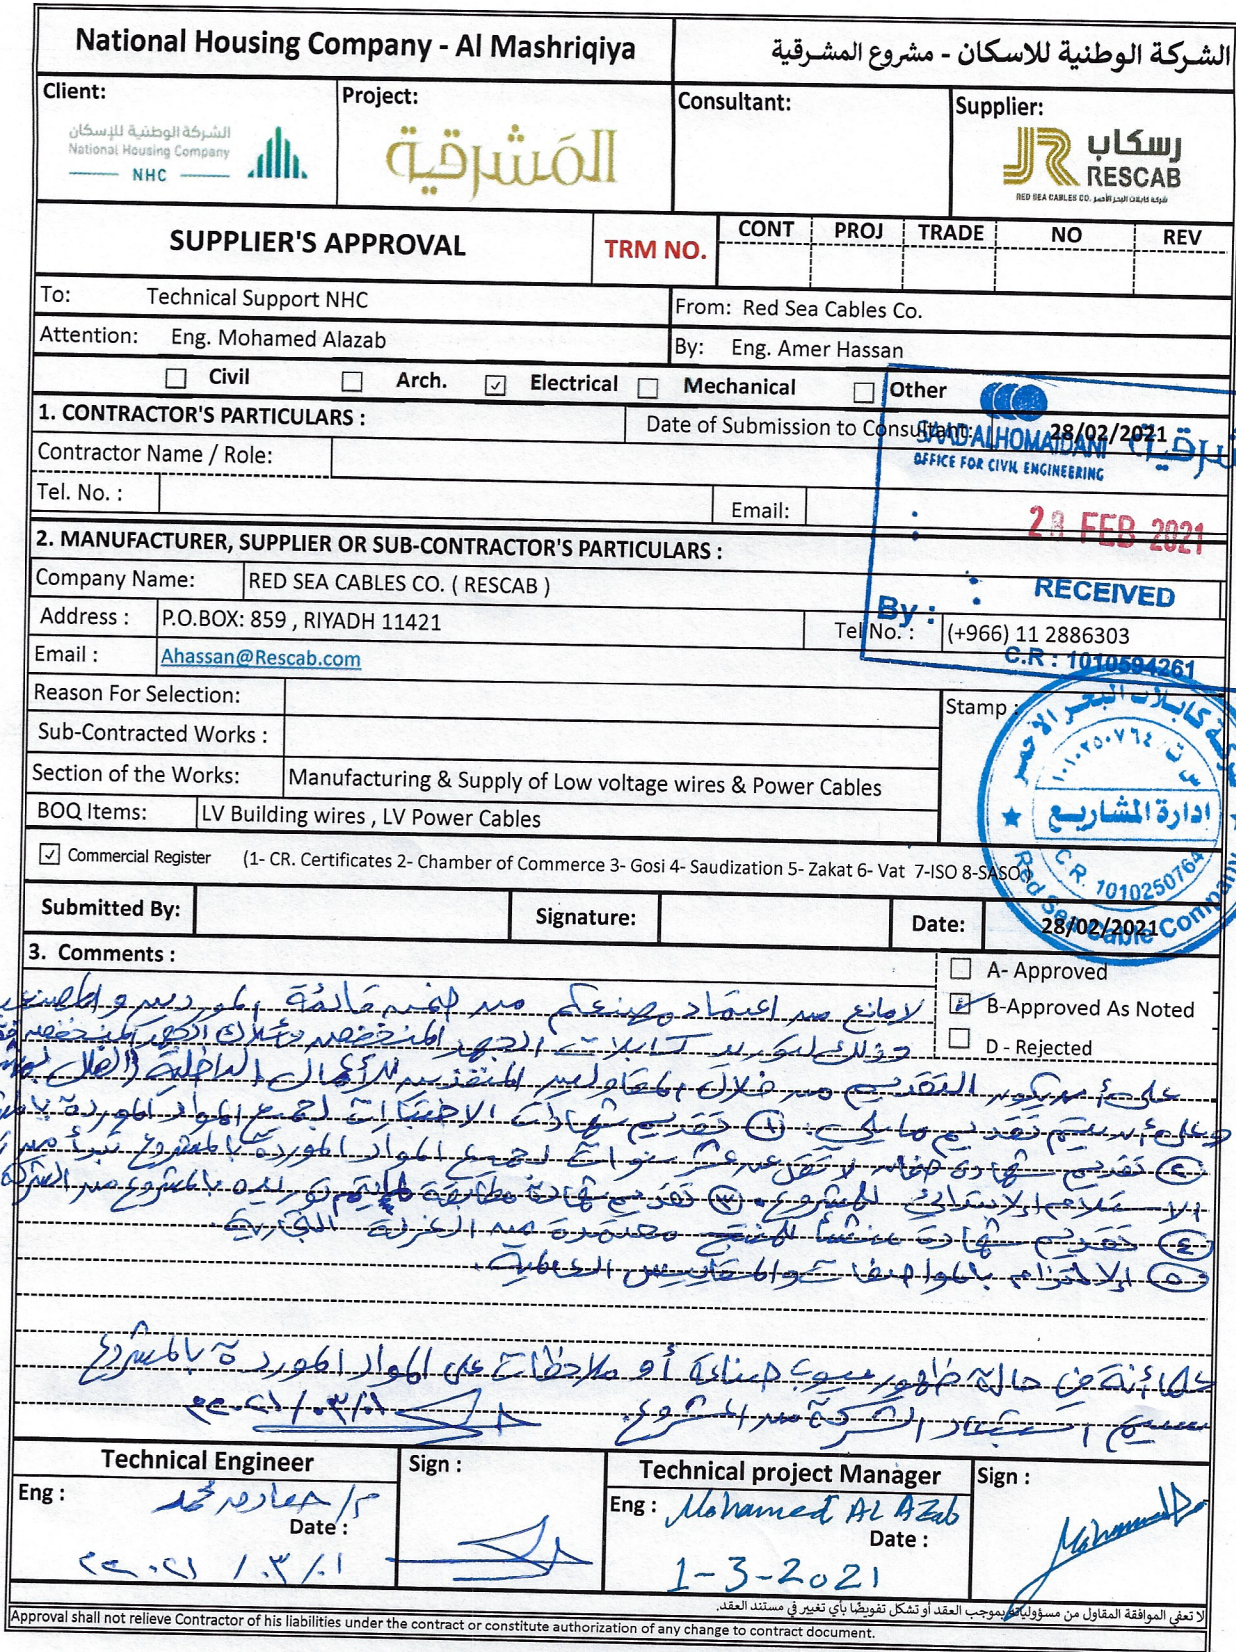 National Housing Company - Al Mashriqiya
الشركة الوطنية للاسكان - مشروع المشرقية
Client:
الشركة الوطنية للإسكان
National Housing Company
NHC
Project:
المَشرقية
Consultant:
Supplier:
رسكاب
RESCAB
RED SEA CABLES CO. شركة كابلات البحر الأحمر
SUPPLIER'S APPROVAL
TRM NO.
CONT PROJ TRADE NO REV
To: Technical Support NHC
From: Red Sea Cables Co.
Attention: Eng. Mohamed Alazab
By: Eng. Amer Hassan
Civil Arch. Electrical Mechanical Other
1. CONTRACTOR'S PARTICULARS :
Date of Submission to Consultant: 28/02/2021
SAAD ALHOMAIDANI
OFFICE FOR CIVIL ENGINEERING
Contractor Name / Role:
Tel. No. :
Email:
28 FEB 2021
RECEIVED
By :
C.R : 1010594261
2. MANUFACTURER, SUPPLIER OR SUB-CONTRACTOR'S PARTICULARS :
Company Name: RED SEA CABLES CO. ( RESCAB )
Address : P.O.BOX: 859 , RIYADH 11421
Tel No. : (+966) 11 2886303
Email : Ahassan@Rescab.com
Reason For Selection:
Stamp :
Sub-Contracted Works :
Section of the Works: Manufacturing & Supply of Low voltage wires & Power Cables
BOQ Items: LV Building wires , LV Power Cables
شركة كابلات البحر الاحمر
س ت ١٠١٠٢٥٠٧٦٤
ادارة المشاريع
C.R. 1010250764
Red Sea Cable Company
Commercial Register (1- CR. Certificates 2- Chamber of Commerce 3- Gosi 4- Saudization 5- Zakat 6- Vat 7-ISO 8-SASO)
Submitted By:
Signature:
Date: 28/02/2021
3. Comments :
A- Approved
B-Approved As Noted
D - Rejected
لا مانع من اعتماد مصنعكم من ضمن قائمة الموردين والمصنعين
وذلك لتوريد كابلات الجهد المنخفض وأسلاك الجهد المنخفض
على أن يكون التقديم من خلال المقاولين المنفذين للأعمال الداخلية
وعلى أن يتم تقديم ما يلي: ① تقديم شهادات الاختبارات لجميع المواد الموردة
② تقديم شهادة ضمان لا تقل عن عشر سنوات لجميع المواد الموردة بالمشروع تبدأ من
الاستلام الابتدائي للمشروع. ③ تقديم شهادة مطابقة لما يتم توريده بالمشروع من الشركة
④ تقديم شهادة منشأ للمنتج معتمدة من الغرفة التجارية.
⑤ الالتزام بالمواصفات والمقاييس العالمية.
علما أنه في حالة ظهور عيوب صناعة أو ملاحظات على المواد الموردة بالمشروع
سيتم استبعاد الشركة من المشروع.
٢٠٢١/٠٣/٠١
Technical Engineer
Sign :
Technical project Manager
Sign :
Eng :
Eng : Mohamed AL AZab
Date :
٢٠٢١/٠٣/٠١
Date :
1-3-2021
لا تعفي الموافقة المقاول من مسؤولياته بموجب العقد أو تشكل تفويضًا بأي تغيير في مستند العقد.
Approval shall not relieve Contractor of his liabilities under the contract or constitute authorization of any change to contract document.